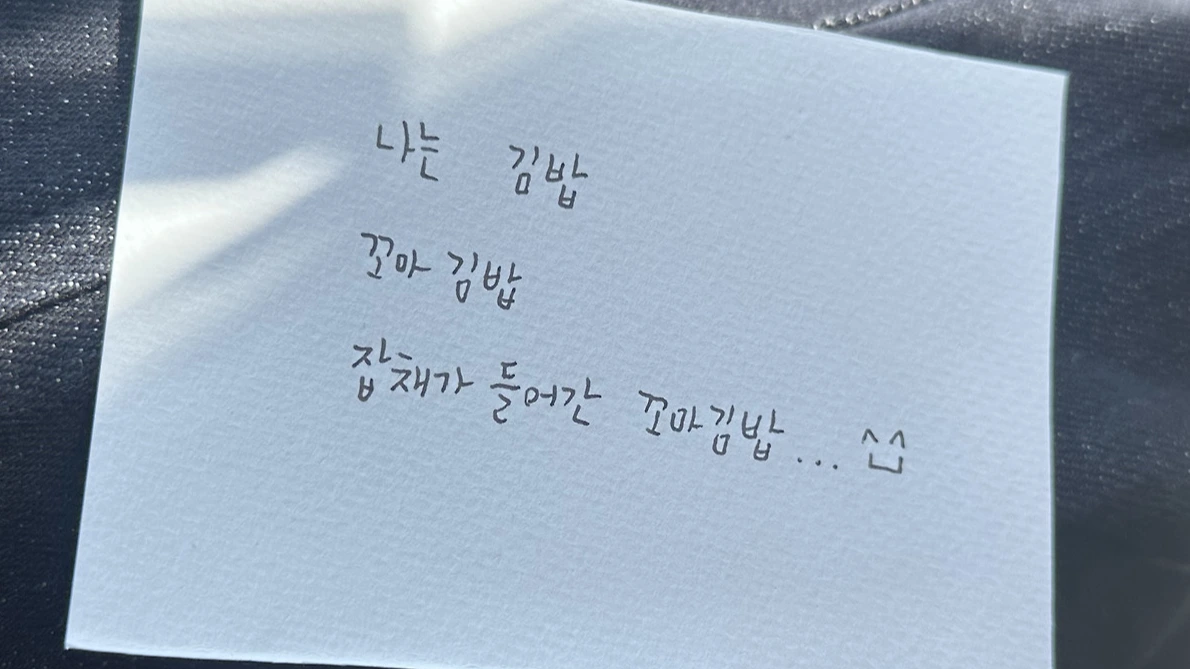 나는 김밥
꼬마 김밥
잡채가 들어간 꼬마김밥... ^ㅡ^